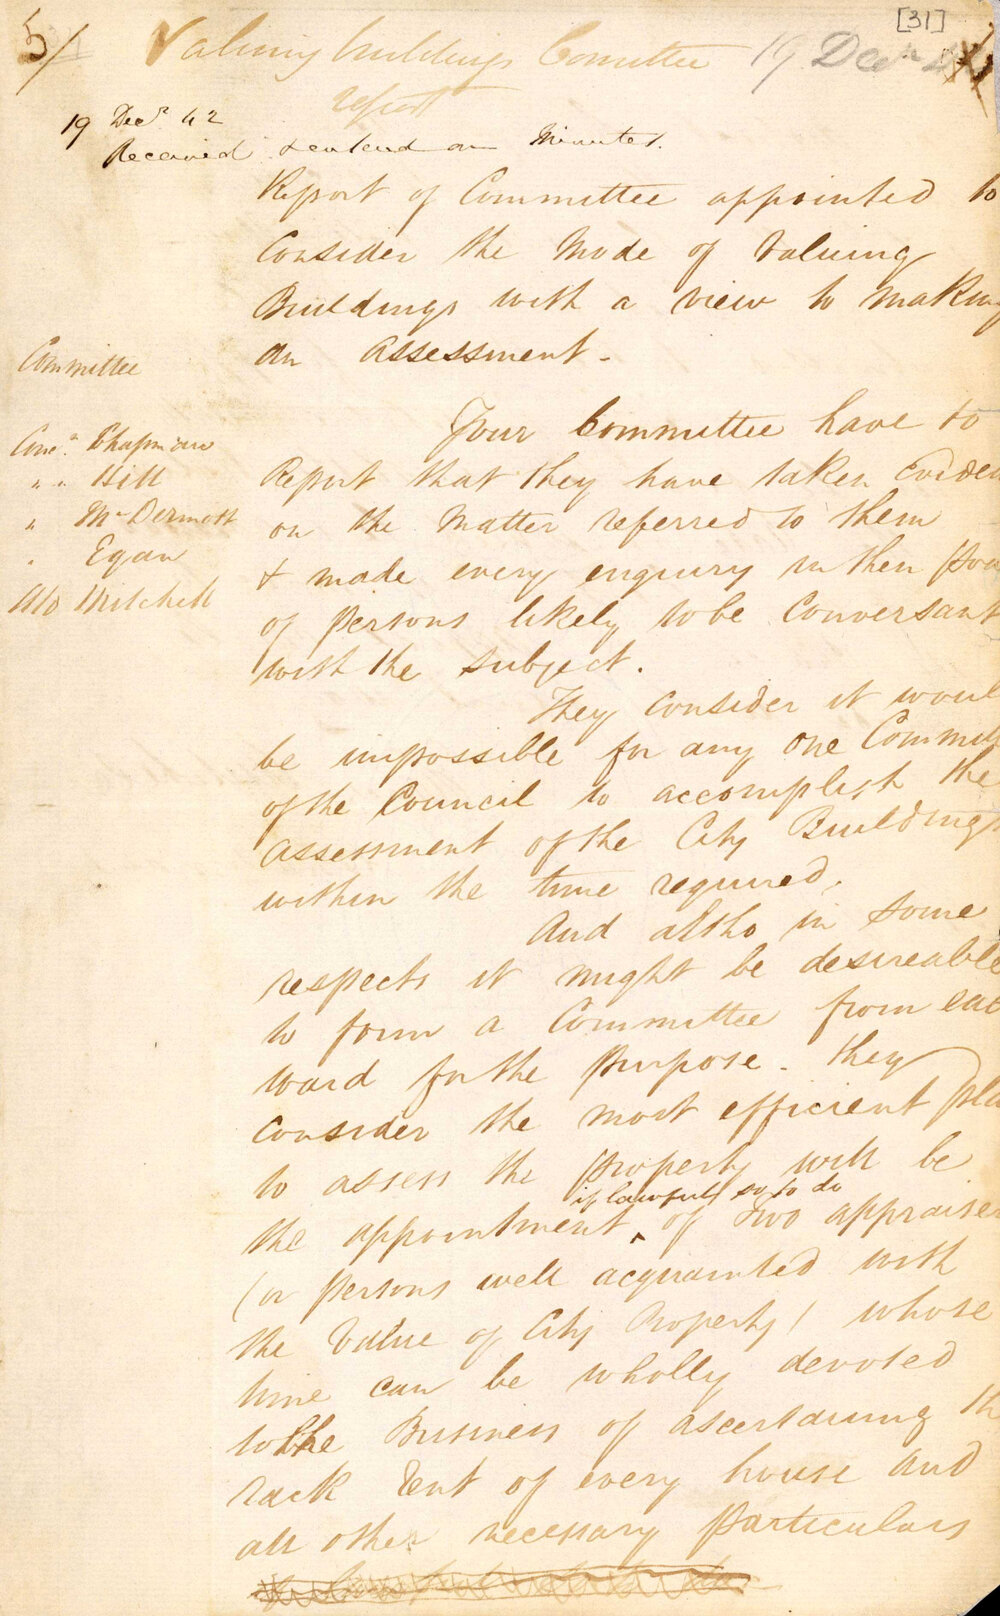 [31]
5/ Valuing buildings Committee 19 Decr 42
report
19 Decr. 42
Received & entered on Minutes.
Report of Committee appointed to
Consider the Mode of Valuing
Buildings with a view to Making
an Assessment -
Committee
Counr. Chapman
" " Hill
" McDermott
" Egan
Ald Mitchell
Your Committee have to
Report that they have taken eviden
on the Matter referred to them
& made every enquiry in their pow
of persons likely to be Conversant
with the subject.
They consider it woul
be impossible for any one Committ
of the Council to accomplish the
assessment of the City Buildings
within the time required.
And altho in some
respects it might be desireable
to form a Committee from eac
ward for the purpose. they
consider the most efficient pla
to assess the property will be
if lawful so to do
the appointment ^ of Two appraiser
(or persons well acquainted with
the Value of City Property) whose
time can be wholly devoted
to the Business of ascertaining th
rack Rent of every house and
all other necessary particulars